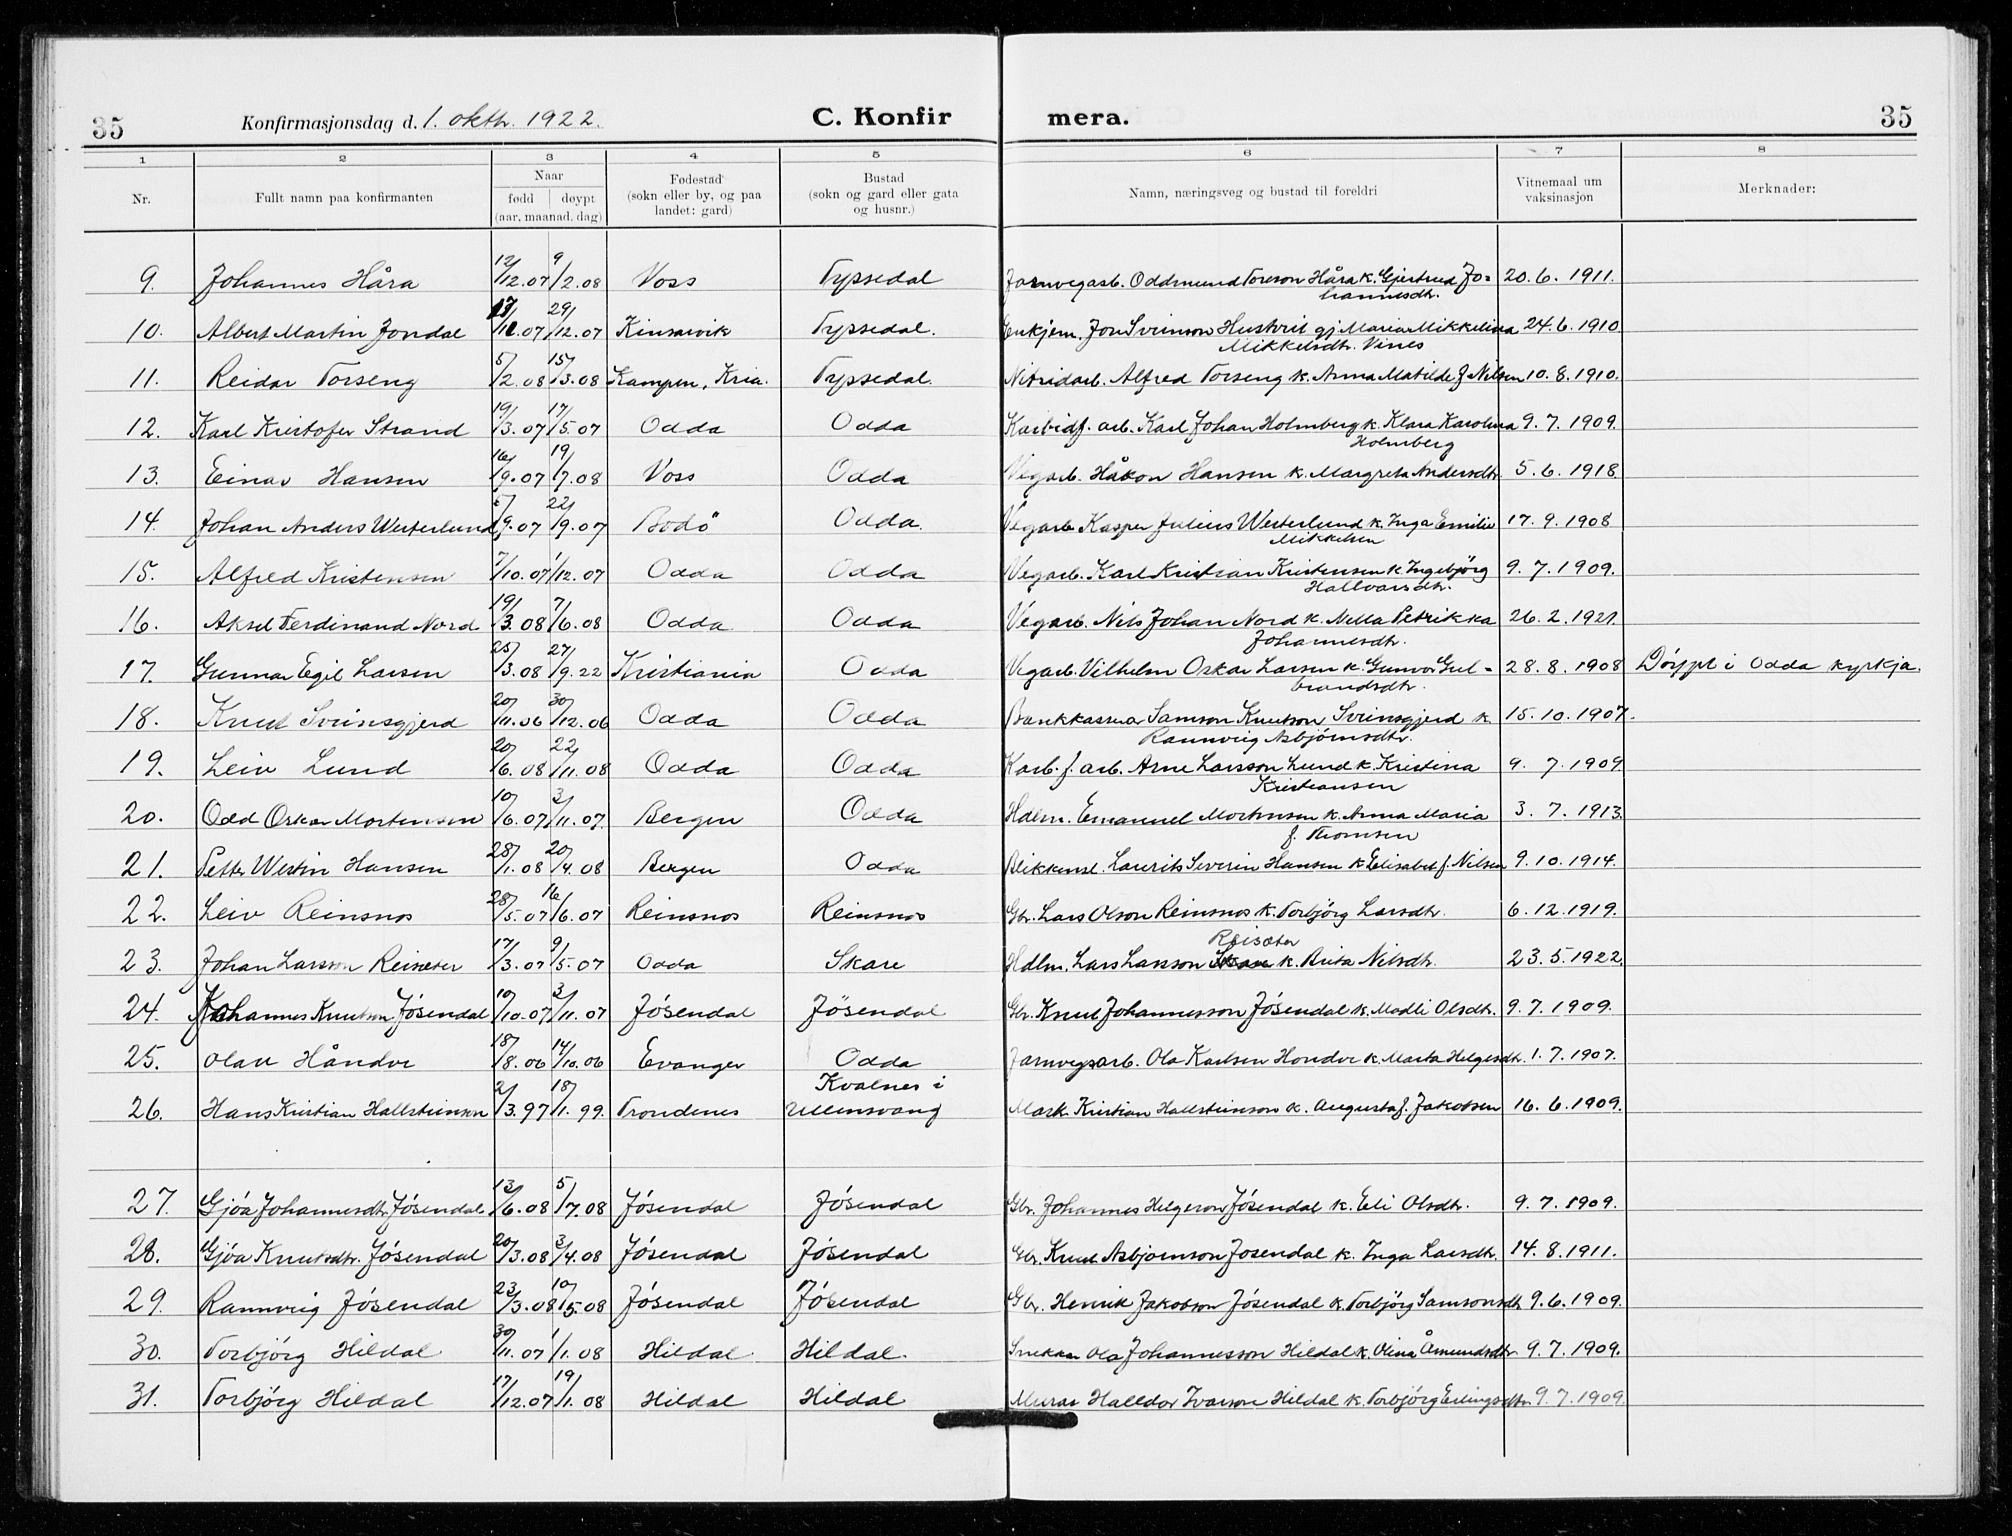 35 Konfirmasjonsdag d. 1. oktbr. 1922. C. Konfir mera. 35
1 2 3 4 5 6 7 8
Nr. Fullt namn paa konfirmanten Naar fødd døypt (aar, maanad, dag) Fødestad (sokn eller by, og paa landet: gard) Bustad (sokn og gard eller gata og husnr.) Namn, næringsveg og bustad til foreldri Vitnemaal um vaksinasjon Merknader:
9. Johannes Håra 12/12.07 9/2.08 Voss Tyssedal Jarnvegarb. Oddmund Toreson Håra k. Gjertrud Jo- 20.6.1911.
hannesdtr.
10. Albert Martin Jondal 29/12.07 Kinsarvik Tyssedal. Enkjem. Jon Sveinson Hustveit gj. Maria Mikkelina 24.6.1910
Mikkelsdtr. Vines
11. Reidar Torseng 5/2.08 15/3.08 Kampen, Kria. Tyssedal. Nitridarb. Alfred Torseng k. Anna Matilde f Nilsen 10.8.1910.
12. Karl Kristofer Strand 19/3.07 17/5.07 Odda Odda Karbidf. arb. Karl Johan Holmberg k. Klara Karolina 9.7.1909.
Holmberg
13. Einar Hansen 16/9.07 19/7.08 Voss Odda Vegarb. Håkon Hansen k. Margreta Andersdtr. 5.6.1918.
14. Johan Anders Westerlund 5/9.07 22/9.07 Bodö Odda. Vegarb Kasper Julius Westerlund k. Inga Emilie 17.9.1908
Mikkelsen
15. Alfred Kristensen 7/10.07 1/12.07 Odda Odda Vegarb. Karl Kristian Kristensen k. Ingebjörg 9.7.1909.
Hallvarsdtr.
16. Aksel Ferdinand Nord 19/3.08 7/6.08 Odda Odda Vegarb. Nils Johan Nord k. Nella Petrikka 26.2.1921.
Johannesdtr.
17. Gunnar Egil Larsen 25/3.08 27/9.22 Kristiania Odda Vegarb. Vilhelm Oskar Larsen k. Gunvor Gul- 28.8.1908 Døypt i Odda kyrkja.
brandsdtr.
18. Knut Sveinsgjerd 20/11.06 30/12.06 Odda Odda Bankkasserar Samson Knutson Sveinsgjerd k. 15.10.1907.
Rannveig Asbjørnsdtr.
19. Leiv Lund 20/6.08 22/11.08 Odda Odda Karb. f. arb. Arne Larsson Lund k. Kristina 9.7.1909
Kristiansen
20. Odd Oskar Mortensen 10/6.07 3/11.07. Bergen Odda Hdlm. Emanuel Mortensen k. Anna Maria 3.7.1913.
f. Thomsen
21. Petter Westin Hansen 28/1.08 20/4.08 Bergen Odda Blikkensl. Laurits Severin Hansen k Elisabet f. Nilsen 9.10.1914.
22. Leiv Reinsnos 28/5.07 16/6.07 Reinsnos Reinsnos Gbr. Lars Olson Reinsnos k. Torbjörg Larsdtr. 6.12.1919.
Reisæter
23. Johan Larsson Reisæter 17/3.07 9/5.07 Odda Skare Hdlm. Lars Larsson Skare k. Brita Nilsdtr. 23.5.1922.
24. Johannes Knutson Jósendal 10/10.07 3/11.07 Jósendal Jösendal Gbr. Knut Johannesson Jósendal k. Madli Olsdtr. 9.7.1909.
25. Olav Håndve 18/8.06 14/10.06 Evanger Odda Jarnvegsarb. Ola Karlsen Hondve k. Marta Helgesdtr. 1.7.1907.
Kvalnes i
26. Hans Kristian Hallsteinsen 2/3.97 18/1.99. Trondenes Ullensvang Mask. Kristian Hallsteinson k. Augusta f. Jakobsen 16.6.1909.
27. Gjóa Johannesdtr. Jósendal 13/6.08 5/7.08 Jósendal Jósendal Gbr. Johannes Helgeson Jósendal k. Eli Olsdtr. 9.7.1909.
28. Gjóa Knutsdtr. Jósendal 20/3.08 3/4.08 Jósendal Jósendal Gbr. Knut Asbjornson Josendal k. Inga Larsdtr. 14.8.1911.
29. Rannveig Jósendal 23/3.08 10/5.08 Jósendal Jósendal Gbr. Henrik Jakobson Jósendal k. Torbjörg Samsonsdtr 9.6.1909.
30. Torbjörg Hildal 30/11.07 1/1.08 Hildal Hildal. Snekkar Ola Johannesson Hildal k. Olina Åmundsdtr. 9.7.1909.
31. Torbjörg Hildal 17/12.07 19/1.08 Hildal Hildal Murar Halldor Ivarson Hildal k. Torbjörg Erlingsdtr. 9.7.1909.